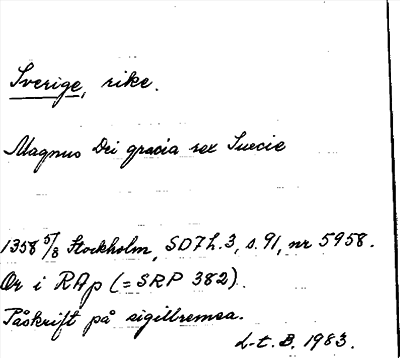 Sverige, rike.
Magnus Dei gracia rex Suecie
1358 5/8 Stockholm, SD7h.3, s.91, nr 5958.
Or i RAp (=SRP 382).
Påskrift på sigillremsa.
L-t. B. 1983.